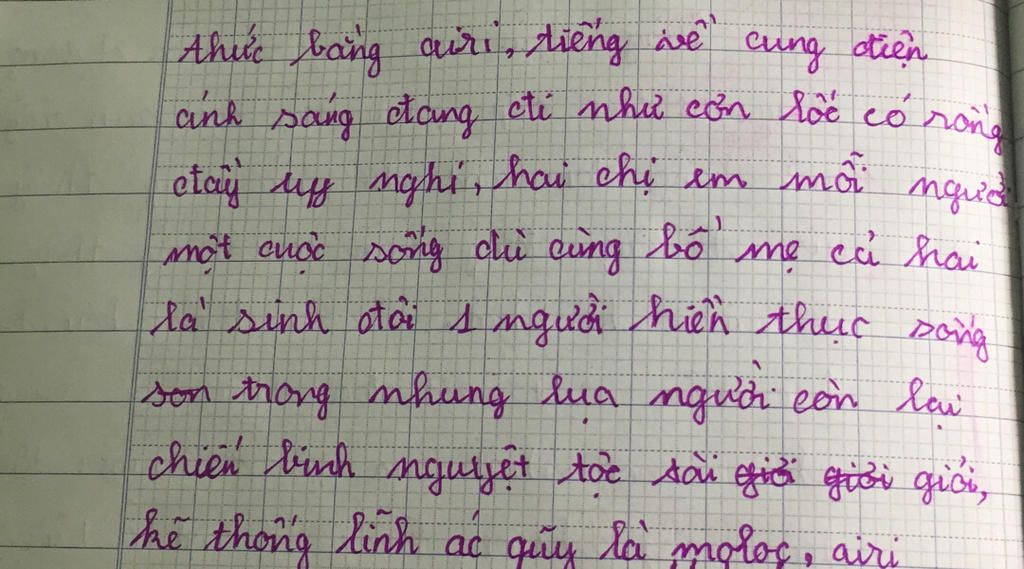 thức bằng airi, tiếng về cung điện
ánh sáng đang đi như cơn lốc có rồng
đầy uy nghi, hai chị em mỗi người
một cuộc sống dù cùng bố mẹ cả hai
là sinh đôi 1 người hiền thục sống
son trong nhung lụa người còn lại
chiến binh nguyệt tộc tài giỏi giỏi giỏi,
hễ thống lĩnh ác quỹ là moloc, airi